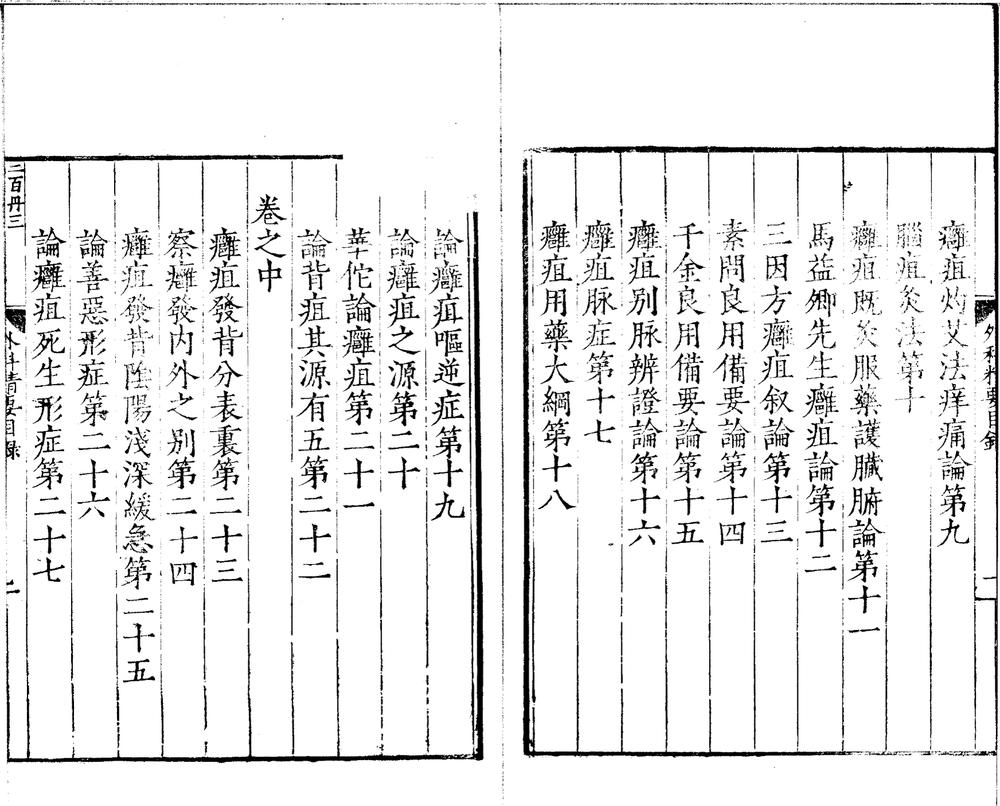 癰疽灼艾法痒痛論第九
腦疽灸法第十
癰疽既灸服藥護臟腑論第十一
馬益卿先生癰疽論第十二
三因方癰疽叙論第十三
素問良用備要論第十四
千金良用備要論第十五
癰疽别脉辨證論第十六
癰疽脉症第十七
癰疽用藥大綱第十八
論癰疽嘔逆症第十九
論癰疽之源第二十
華佗論癰疽第二十一
論背疽其源有五第二十二
卷之中
癰疽發背分表裏第二十三
察癰發内外之别第二十四
癰疽發背陰陽淺深緩急第二十五
論善惡形症第二十六
論癰疽死生形症第二十七
二百卅三
外科精要目録